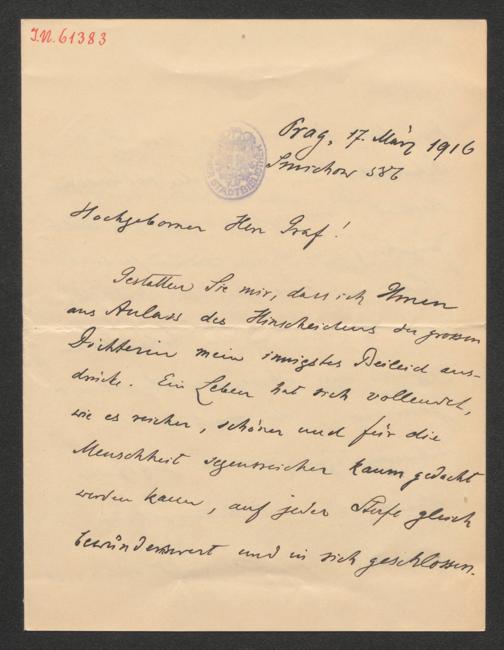 I.N. 61383
Prag, 17. März 1916
Smichow 586
STADTBIBLIOTHEK
Hochgeborner Herr Graf!
Gestatten Sie mir, dass ich Ihnen
aus Anlass des Hinscheidens der grossen
Dichterin mein innigstes Beileid aus-
drücke. Ein Leben hat sich vollendet,
wie es reicher, schöner und für die
Menschheit segensreicher kaum gedacht
werden kann, auf jeder Stufe gleich
bewundernswert und in sich geschlossen.